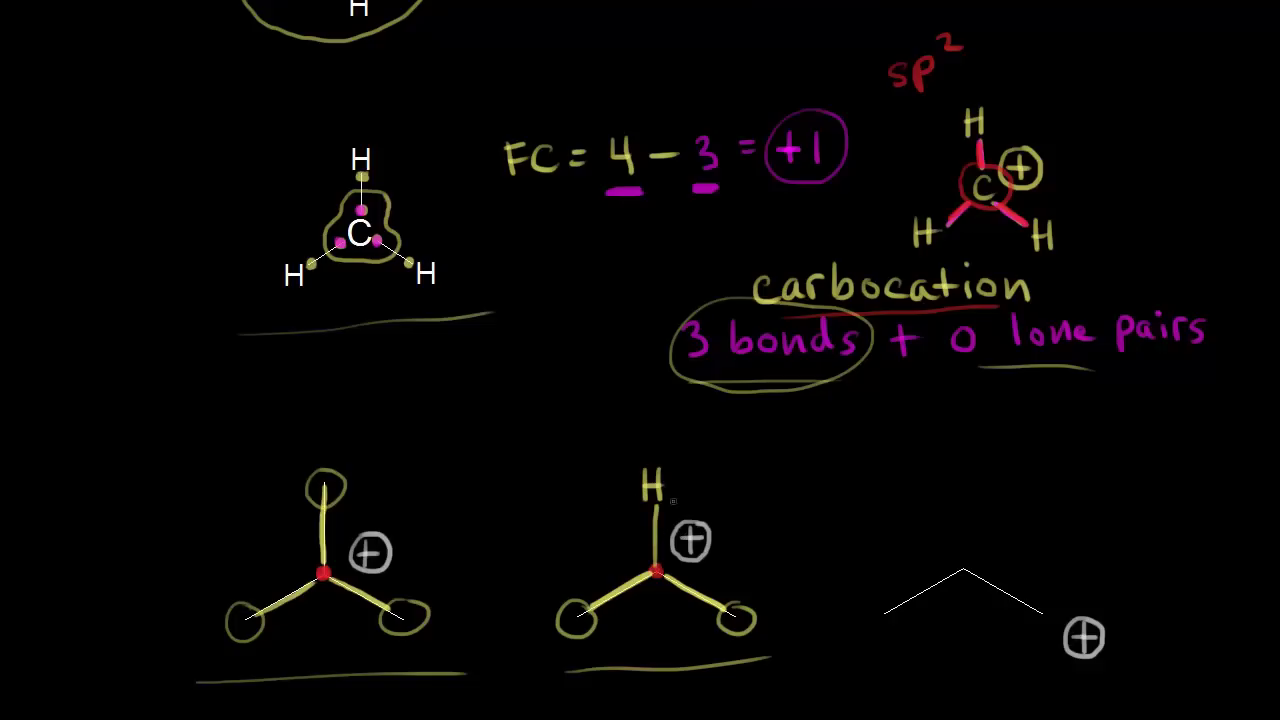 H
sp²
H
FC = 4 - 3 = +1
H
C
+
C
H
H
H
H
carbocation
3 bonds + 0 lone pairs
H
+
+
+